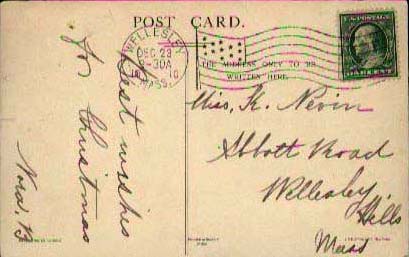 POST CARD.
WELLESLEY
DEC 23
8-30A
19 10
MASS.
THE ADDRESS ONLY TO BE
WRITTEN HERE.
Best wishes
for Christmas
Miss. K. Nevin
Abbott Road
Wellesley
Hills
Mass